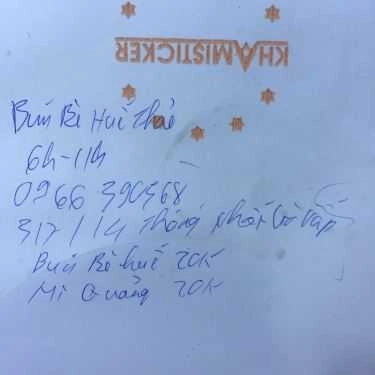 KHAMISTICKER
Bún Bò Huế
6h-11h
0966 390568
317/14 Thống Nhất Gò Vấp
Bún Bò huế 20k
Mì Quảng 20k